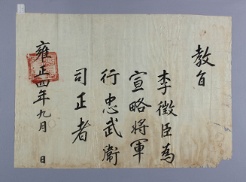 教旨
李徵臣為
宣略將軍
行忠武衛
司正者
雍正四年九月 日